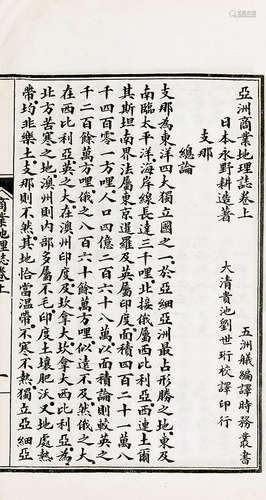 亞洲商業地理志卷上
五洲輶編譯時務叢書
日本永野耕造著
大清貴池劉世珩校譯印行
支那
總論
支那為東洋四大獨立國之一於亞細亞洲最占形勝之地東及
南臨太平洋海岸線長達三千哩北接俄屬西比利亞西連土爾
其斯坦南界法屬東京暹羅及英屬印度面積四百二十一萬八
千四百零一方哩人口四億二百六十八萬以面積論則較英之
千二百餘萬方哩俄之八百六十餘萬方哩似遠不及然俄之大
在西比利亞英之大在澳洲印度及坎拿大坎拿大西比利亞為
北方苦寒之地澳洲則內部多屬不毛印度土壤肥沃又地處熱
帶均非樂土支那則不然其地恰當溫帶不寒不熱獨立亞細亞
商業地理志卷上
一